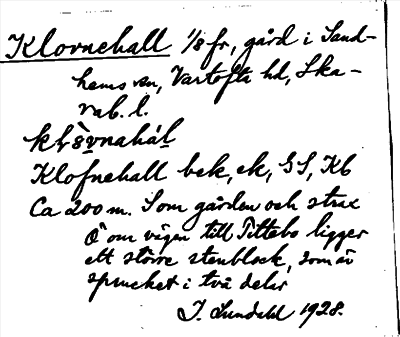 Klovnehall 1/8 fr, gård i Sand-
hems sn, Vartofta hd, Ska-
rab. l.
Klofnehall bek, ek, GS, Kb
Ca 200 m. S om gården och strax
Ö om vägen till Tittebo ligger
ett större stenblock, som är
sprucket i två delar
J. Lundahl 1928.